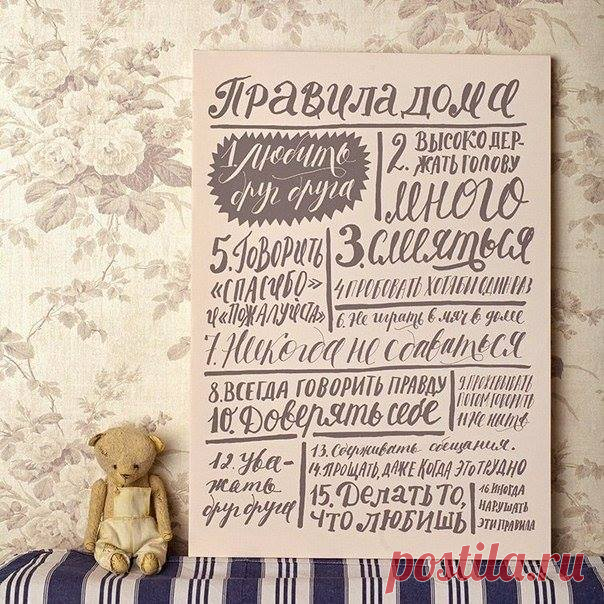 Правила дома
1. Любить
друг друга
2. ВЫСОКО ДЕР-
ЖАТЬ ГОЛОВУ
много
3. смеяться
4. ПРОБОВАТЬ ХОТЯ БЫ ОДИН РАЗ
5. Говорить
«СПАСИБО»
и «ПОЖАЛУЙСТА»
6. Не играть в мяч в доме
7. Никогда не сдаваться
8. ВСЕГДА ГОВОРИТЬ ПРАВДУ
9. ПРОЖЕВЫВАТЬ,
ПОТОМ ГОВОРИТЬ
10. Доверять себе
11. Не ныть
12. Ува-
жать
друг друга
13. Сдерживать обещания.
14. ПРОЩАТЬ, ДАЖЕ КОГДА ЭТО ТРУДНО
15. Делать то,
ЧТО ЛЮБИШЬ
16. ИНОГДА
НАРУШАТЬ
ЭТИ ПРАВИЛА
postila.ru